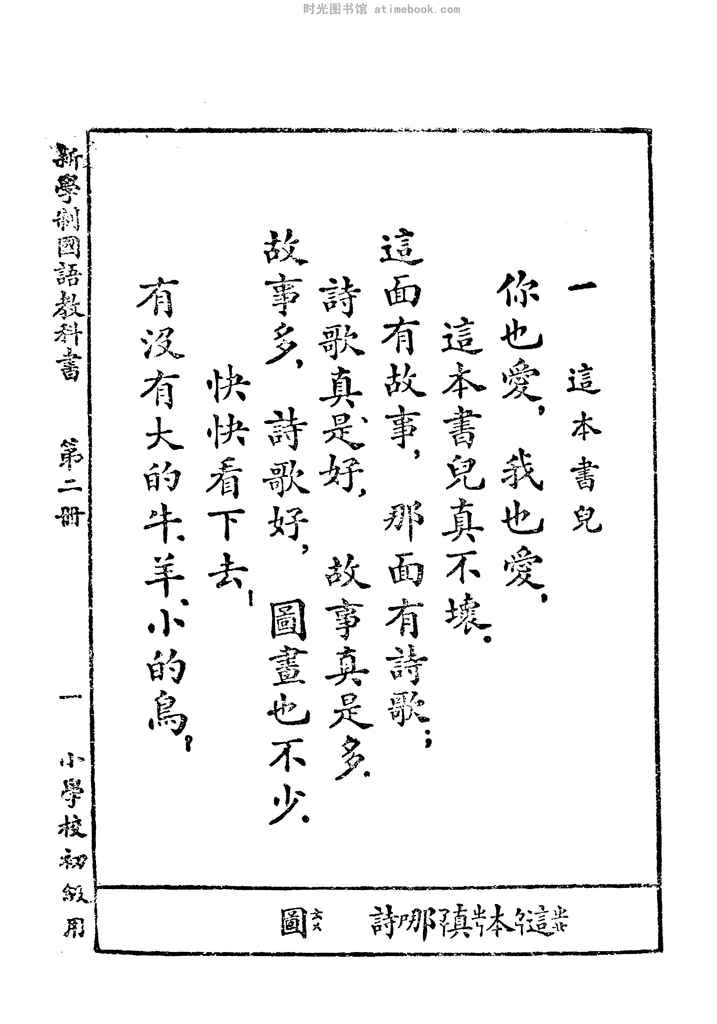 时光图书馆 atimebook.com
一 這本書兒
你也愛，我也愛，
這本書兒真不壞．
這面有故事，那面有詩歌；
詩歌真是好，故事真是多．
故事多，詩歌好，圖畫也不少．
快快看下去！
有沒有大的牛、羊、小的鳥？
新學制國語教科書 第二冊 一 小學校初級用
這 本 真 那 詩 圖